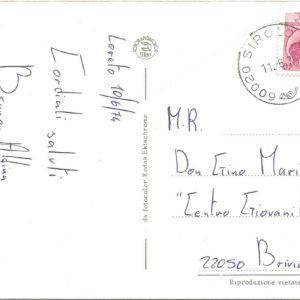 Loreto 10/6/74
Cordiali saluti
da fotocolor Kodak Ektachrome
60020 SIROL
11.6.
M.R.
Don Gino Mari
"Centro Giovanil
22050 Brivi
Riproduzione vietata